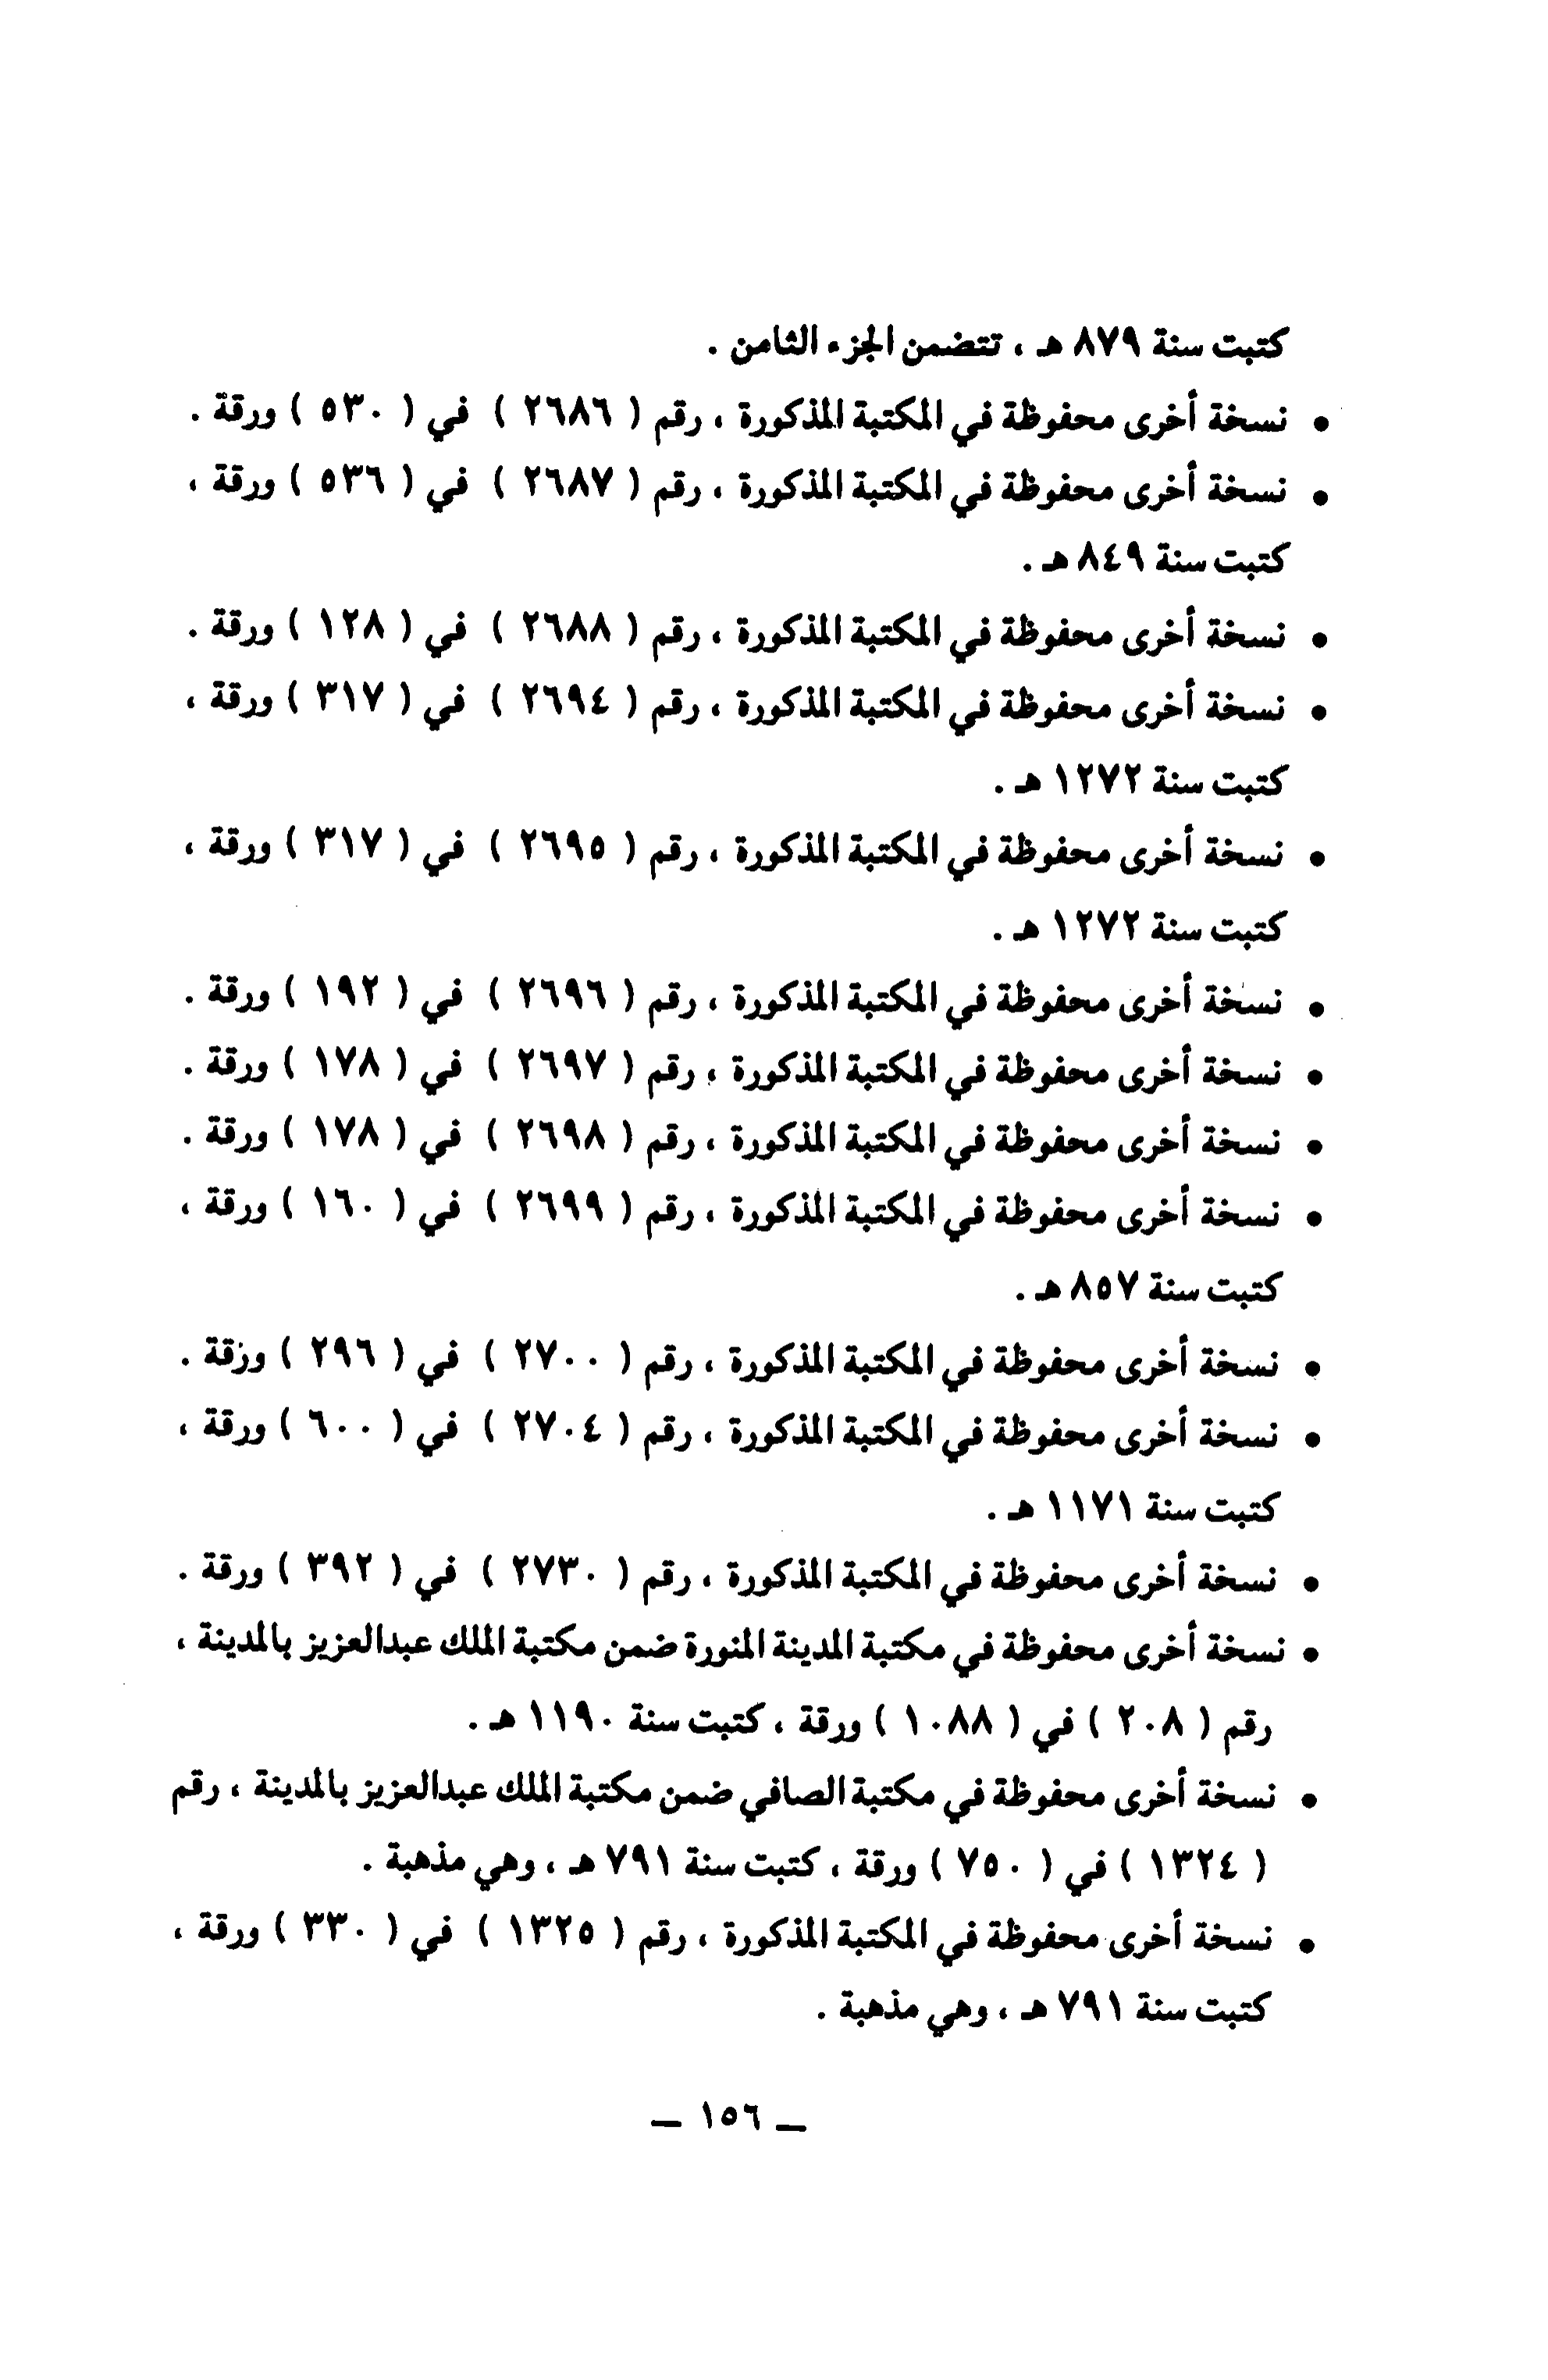 كتبت سنة ٨٧٩ هـ ، تتضمن الجزء الثامن .
● نسخة أخرى محفوظة في المكتبة المذكورة ، رقم ( ٢٦٨٦ ) في ( ٥٣٠ ) ورقة .
● نسخة أخرى محفوظة في المكتبة المذكورة ، رقم ( ٢٦٨٧ ) في ( ٥٣٦ ) ورقة ،
كتبت سنة ٨٤٩ هـ .
● نسخة أخرى محفوظة في المكتبة المذكورة ، رقم ( ٢٦٨٨ ) في ( ١٢٨ ) ورقة .
● نسخة أخرى محفوظة في المكتبة المذكورة ، رقم ( ٢٦٩٤ ) في ( ٣١٧ ) ورقة ،
كتبت سنة ١٢٧٢ هـ .
● نسخة أخرى محفوظة في المكتبة المذكورة ، رقم ( ٢٦٩٥ ) في ( ٣١٧ ) ورقة ،
كتبت سنة ١٢٧٢ هـ .
● نسخة أخرى محفوظة في المكتبة المذكورة ، رقم ( ٢٦٩٦ ) في ( ١٩٢ ) ورقة .
● نسخة أخرى محفوظة في المكتبة المذكورة ، رقم ( ٢٦٩٧ ) في ( ١٧٨ ) ورقة .
● نسخة أخرى محفوظة في المكتبة المذكورة ، رقم ( ٢٦٩٨ ) في ( ١٧٨ ) ورقة .
● نسخة أخرى محفوظة في المكتبة المذكورة ، رقم ( ٢٦٩٩ ) في ( ١٦٠ ) ورقة ،
كتبت سنة ٨٥٧ هـ .
● نسخة أخرى محفوظة في المكتبة المذكورة ، رقم ( ٢٧٠٠ ) في ( ٢٩٦ ) ورقة .
● نسخة أخرى محفوظة في المكتبة المذكورة ، رقم ( ٢٧٠٤ ) في ( ٦٠٠ ) ورقة ،
كتبت سنة ١١٧١ هـ .
● نسخة أخرى محفوظة في المكتبة المذكورة ، رقم ( ٢٧٣٠ ) في ( ٣٩٢ ) ورقة .
● نسخة أخرى محفوظة في مكتبة المدينة المنورة ضمن مكتبة الملك عبدالعزيز بالمدينة ،
رقم ( ٢٠٨ ) في ( ١٠٨٨ ) ورقة ، كتبت سنة ١١٩٠ هـ .
● نسخة أخرى محفوظة في مكتبة الصافي ضمن مكتبة الملك عبدالعزيز بالمدينة ، رقم
( ١٣٢٤ ) في ( ٧٥٠ ) ورقة ، كتبت سنة ٧٩١ هـ ، وهي مذهبة .
● نسخة أخرى محفوظة في المكتبة المذكورة ، رقم ( ١٣٢٥ ) في ( ٣٣٠ ) ورقة ،
كتبت سنة ٧٩١ هـ ، وهي مذهبة .
ــ ١٥٦ ــ